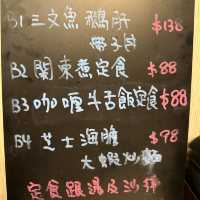 B1 三文魚 鵝肝 $138
椰子汁
B2 関東煮定食 $88
B3 咖喱牛舌飯定食 $88
B4 芝士海膽 $98
大蝦炒麵
定食跟湯及沙拜